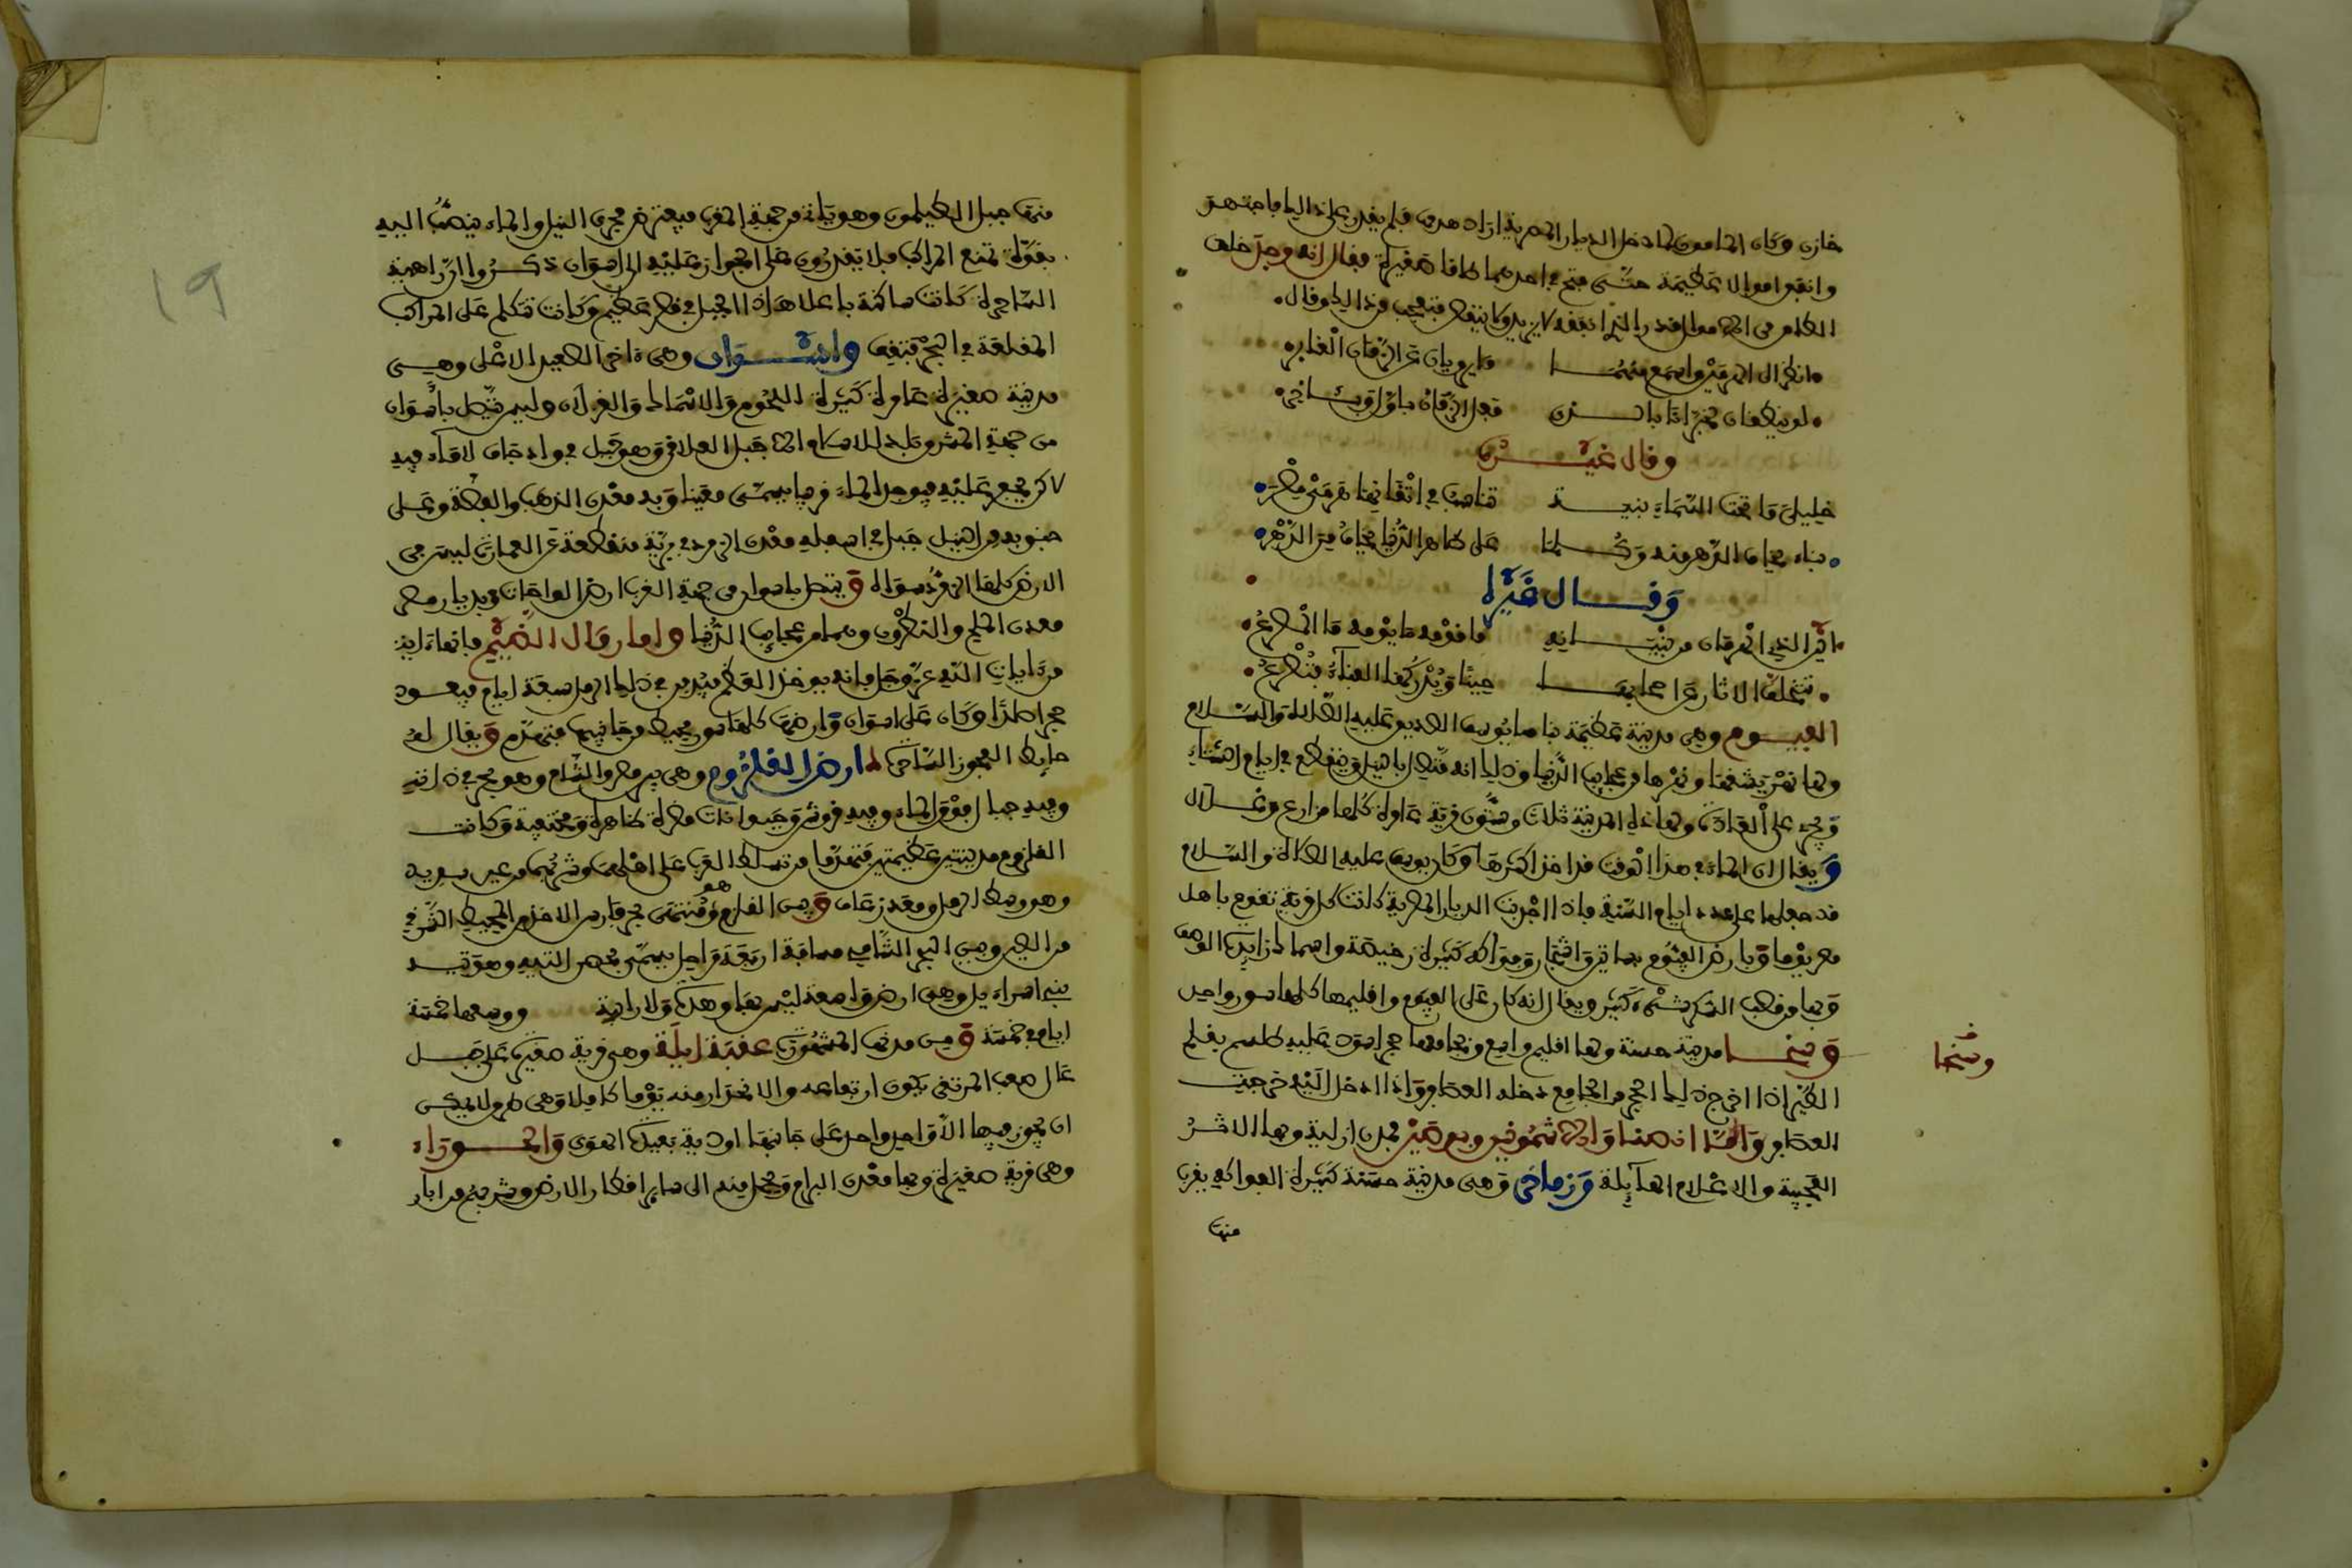 خازن وكان المامون لما دخل الديار المصرية اراد هدمها فلم يقدر على ذالك فاجتهد
وانفق اموالا عظيمة حتى فتح في احدهما طاقا صغيرة فيقال انه وجد خلف
الطاق من الاموال قدر الذي انفقه لا يزيد ولا ينقص فتعجب من ذالك وقال
انظر الى الهرمين واسمع منهما ما يرويان عن الزمان الغابر
لو ينطقان لخبرانا بالذي فعل الزمان باول وبئاخر
وقال غيره
خليلي ما تحت السماء بنية تناسب في اتقانها هرمى مصر
بناء يخاف الدهر منه وكلما على ظاهر الدنيا يخاف من الدهر
وقال غيره
اين الذي الهرمان من بنيانه ما قومه ما يومه ما المصرع
تتخلف الاثار عن اصحابها حينا ويدركها الفناء فتصرع
الفيوم وهي مدينة عظيمة بناها يوسف الصديق عليه الصلاة والسلام
ولها نهر يشقها ونهرها من عجايب الدنيا وذلك انه متصل بالنيل وينقطع في ايام الشتاء
ويجري على العادة ولهاذه المدينة ثلاث وستون قرية عامرة كلها مزارع وغلال
ويقال ان الماء في هذا الوقت قد اخذ اكثرها وكان يوسف عليه الصلاة والسلام
قد جعلها على عدد ايام السنة فاذا اجدبت الديار المصرية كانت كل قرية تقوم باهل
مصر يوما وبارض الفيوم بساتين واشجار وفواكه كثيرة رخيصة واسماك زايدة الوصف
وبها من قصب السكر شىء كثير ويقال انه كان على الفيوم واقليمها كلها سور واحد
وسخا مدينة حسنة ولها اقليم واسع وبجامعها حجر اسود عليه طلسم بقلم
وسخا
الطير اذا اخرج ذلك الحجر من الجامع دخله العصافر واذا ادخل اليه خرجت
العصافر واما انصنا والاشمونين وبوصير فمدن ازلية وبها الاثر
العجيبة والاعلام الهايلة وزماخر وهي مدينة حسنة كثيرة الفواكه يقرب
منها
19
منها جبل الطيلمون وهو ياتي من جهة الغرب فيعترض مجرى النيل والماء ينصب اليه
بقوة تمنع المراكب فلا يقدرون على الجواز عليه الى اسوان ذكروا ان راهبة
الساحرة كانت ساكنة باعلا هاذا الجبل في قصر عظيم وكانت تتكلم على المراكب
المقلعة في البحر فتقف واسوان وهي ءاخر الصعيد الاعلى وهي
مدينة صغيرة عامرة كثيرة اللحوم والاسماك والغزلان وليس يتصل باسوان
من جهة المشرق بلد للاسلام الا جبل العلاقي وهو جبل في واد جاف لا ماء فيه
لاكن يحفر عليه فيوجد الماء قريبا يسمى معينا وبه معدن الذهب والفضة وعلى
جنوبه من النيل جبل في اسفله معدن الزمرد في برية منقطعة عن العمارة ليس في
الارض كلها الزمرد سواه ويتصل باسوان من جهة الغرب ارض الواحات وبديار مصر
معدن الملح والنطرون وهما من عجايب الدنيا واما رمال الضيم فانها ءاية
من ءايات الله عز وجل فانه يوخذ العظم فيدفن في ذلك الرمل سبعة ايام فيعود
حجرا صلدا وكان على اسوان وارضها كلها سور محيط من جانبيها فتهدم ويقال له
حايط العجوز الساحرة ارض القلزوم وهي بين مصر والشام وهو بحر في ذاته
وفيه جبال فوق الماء وفيه قروش وحيوانات مضرة ظاهرة ومختفية وكانت
القلزوم مدينتين عظيمتين فتهدما من تسلط العرب على اهلها وشربهما من عين سدير
وهو وسط الرمل ومعدن زعاق وبين القلزم وهو منتهى بحر فارس الاخذ من المحيط الشرقي
من الصين وبين البحر الشامي مسافة اربعة مراحل يسمى فحص التيه وهو تيه
بنى اسراءيل وهي ارض واسعة ليس بها وهدة ولا رابية ووسعها خمسة
ايام في خمسة ومن مدنها المشهورة عقبة ايلة وهي قرية صغيرة على جبل
عال صعب المرتقى يكون ارتفاعه والانحدار منه يوما كاملا وهي طرق لا يمكن
ان يجوز فيها الا واحد واحد على جانبها اودية بعيدة الهوى والحوراء
وهي قرية صغيرة وبها معدن البرام ويحمل منه الى ساير اقطار الارض وشربهم من ابار